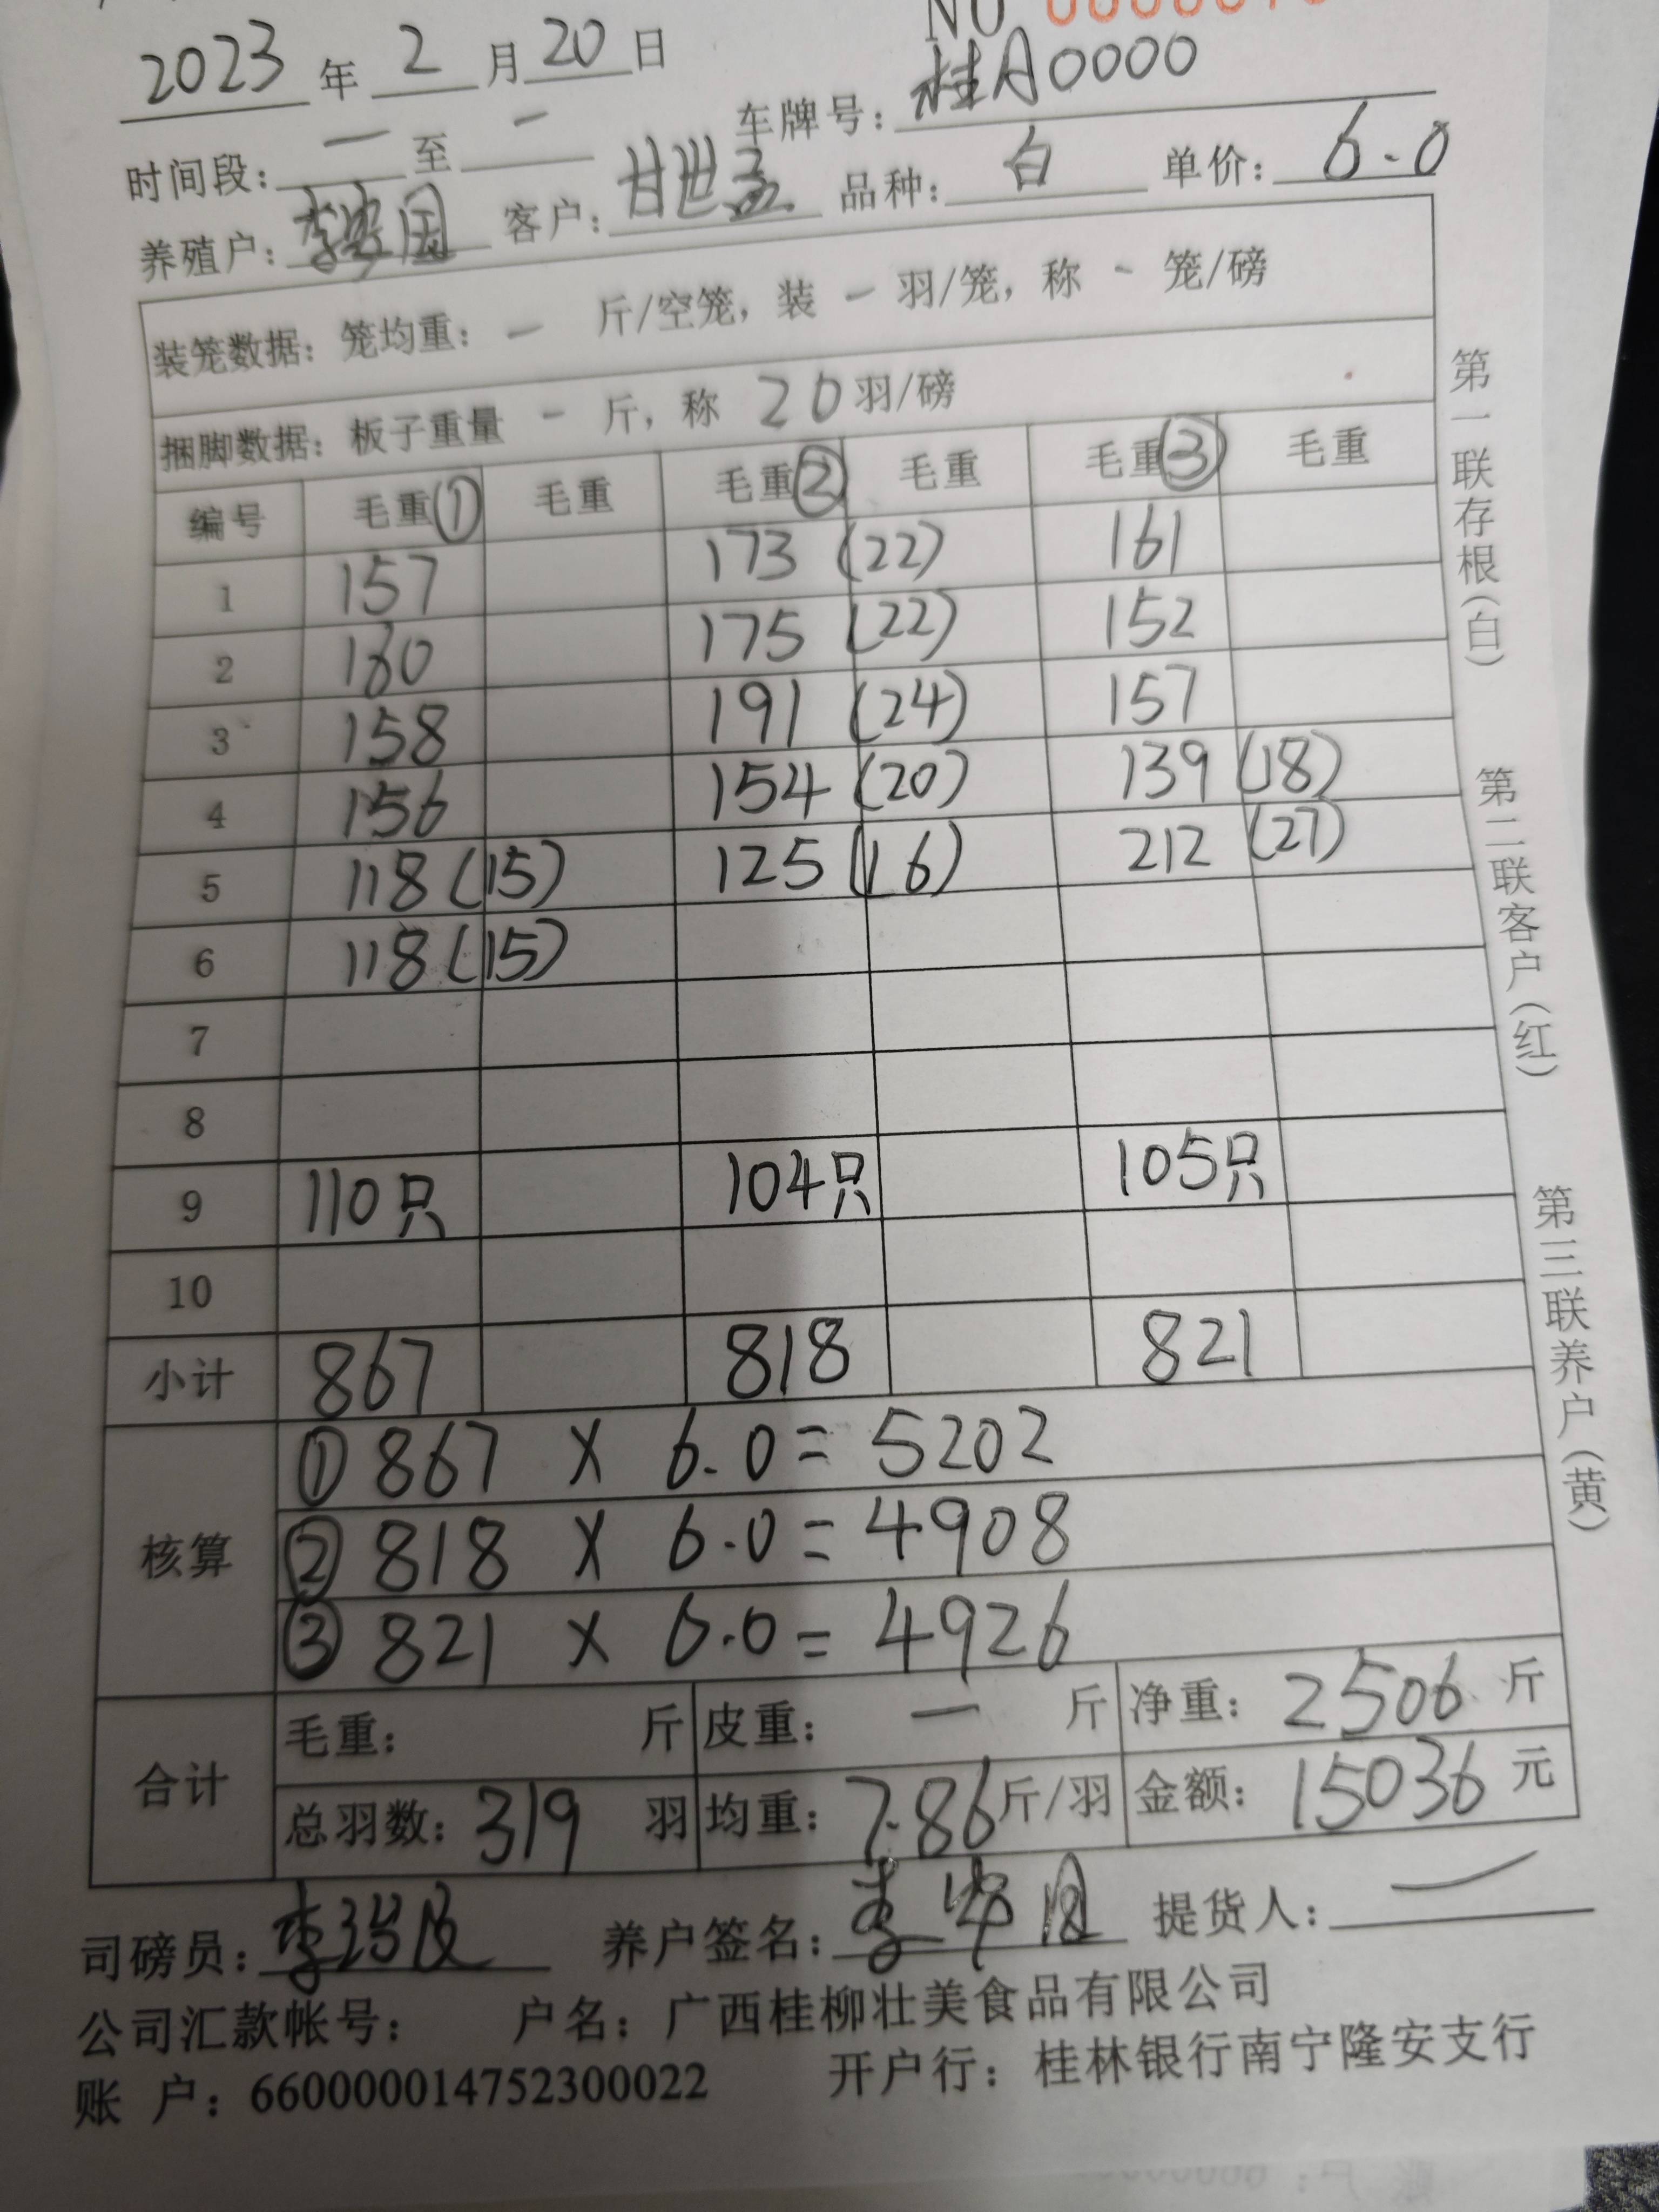 NO
2023 年 2 月 20 日
时间段: 一 至 一 车牌号: 桂A0000
养殖户: 李 国 客户: 甘世孟 品种: 白 单价: 6.0
装笼数据: 笼均重: - 斤/空笼, 装 - 羽/笼, 称 - 笼/磅
捆脚数据: 板子重量 - 斤, 称 20 羽/磅
编号 毛重① 毛重 毛重② 毛重 毛重③ 毛重
1 157 173 (22) 161
2 160 175 (22) 152
3 158 191 (24) 157
4 156 154 (20) 139 (18)
5 118 (15) 125 (16) 212 (27)
6 118 (15)
7
8
9 110只 104只 105只
10
小计 867 818 821
核算 ① 867 X 6.0 = 5202
② 818 X 6.0 = 4908
③ 821 X 6.0 = 4926
合计 毛重: 斤 皮重: 一 斤 净重: 2506 斤
总羽数: 319 羽 均重: 7.86 斤/羽 金额: 15036 元
司磅员: 李 养户签名: 李 国 提货人: 一
公司汇款帐号: 户名: 广西桂柳壮美食品有限公司
账 户: 660000014752300022 开户行: 桂林银行南宁隆安支行
第一联存根(白) 第二联客户(红) 第三联养户(黄)